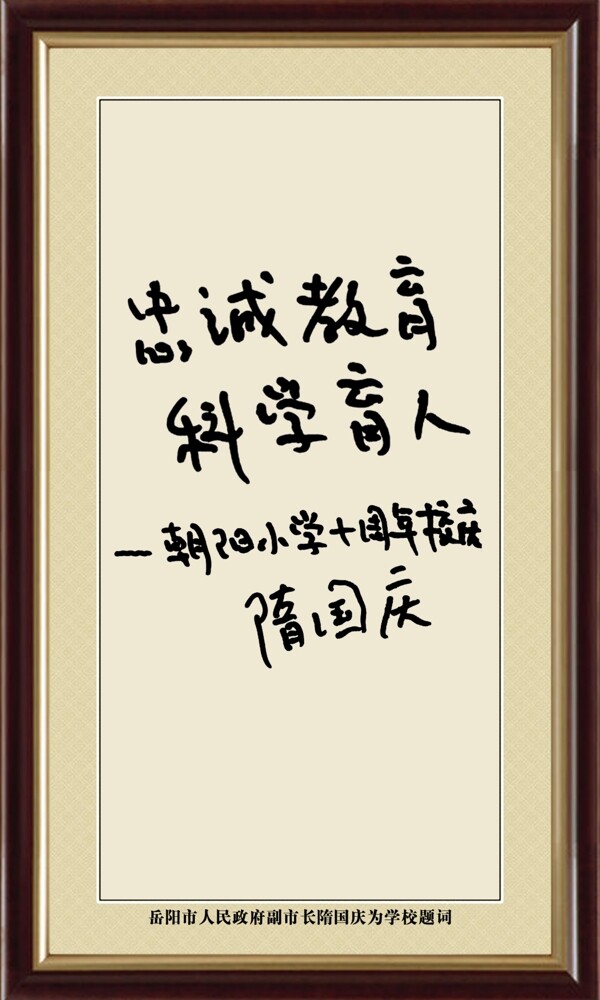 忠诚教育
科学育人
—朝阳小学十周年校庆
隋国庆
岳阳市人民政府副市长隋国庆为学校题词